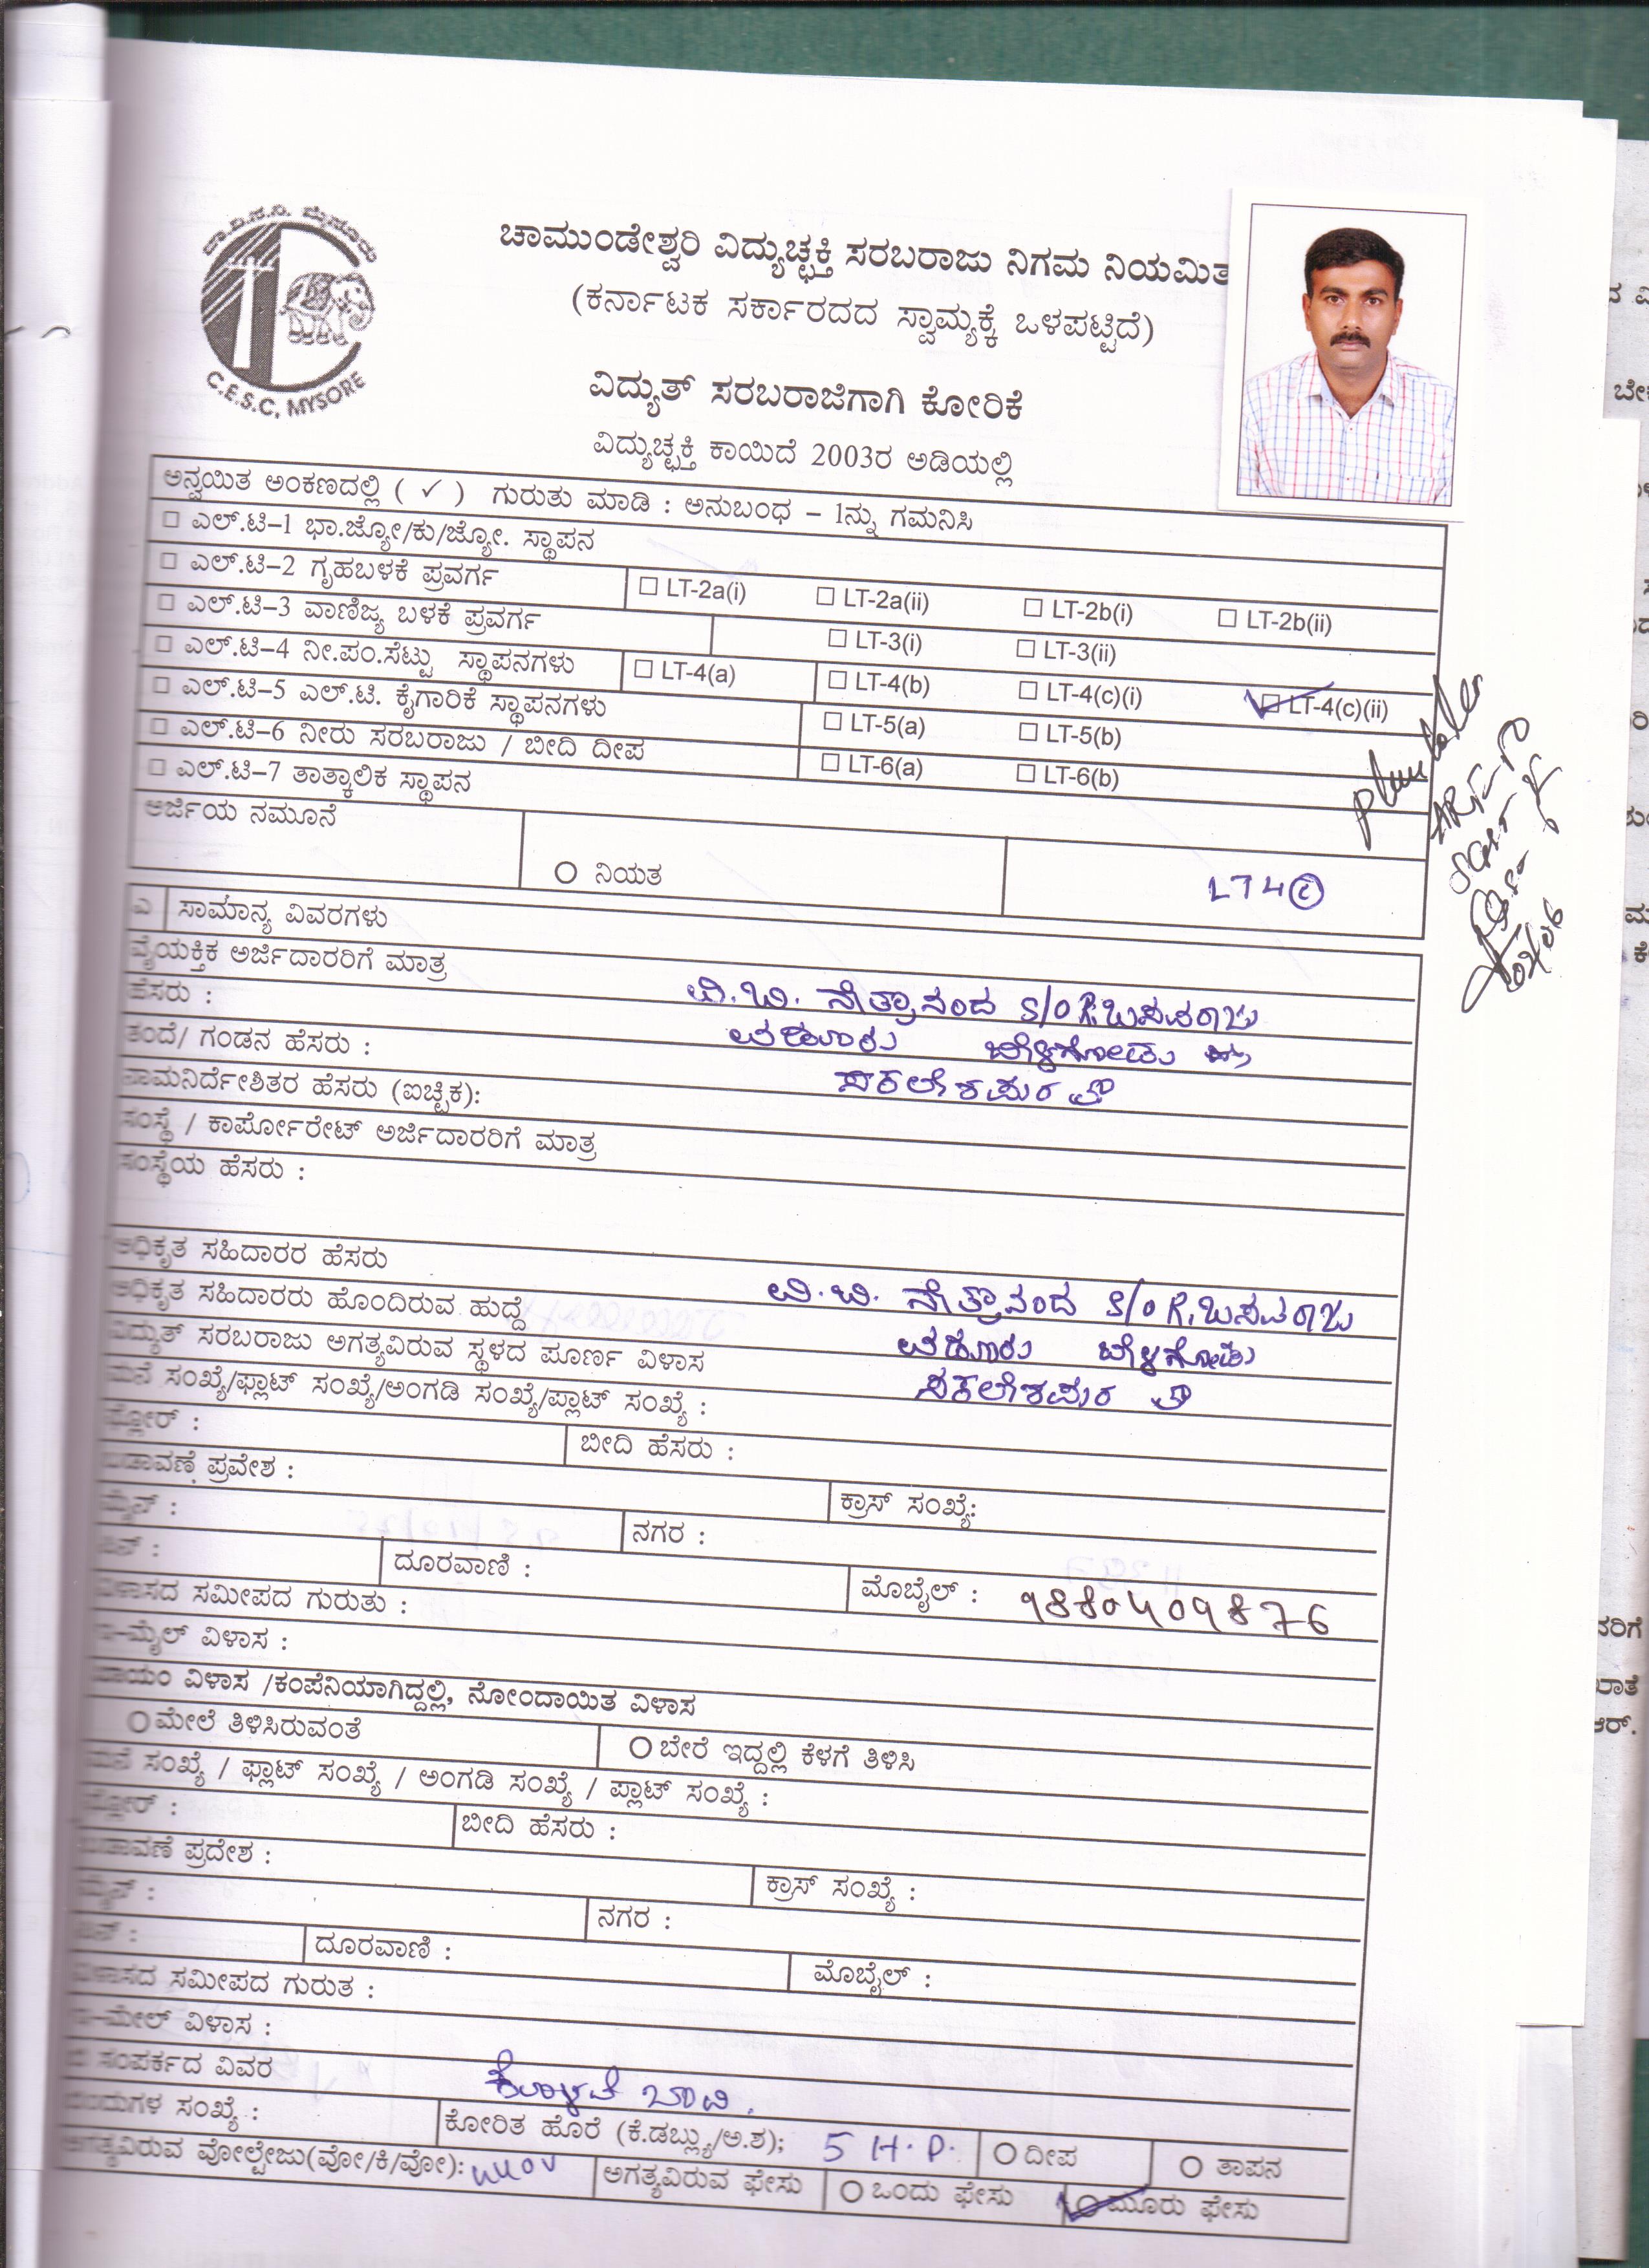 ಚಾ.ವಿ.ಸ.ನಿ. ಮೈಸೂರು
C.E.S.C, MYSORE
ಚಾಮುಂಡೇಶ್ವರಿ ವಿದ್ಯುಚ್ಛಕ್ತಿ ಸರಬರಾಜು ನಿಗಮ ನಿಯಮಿತ
(ಕರ್ನಾಟಕ ಸರ್ಕಾರದದ ಸ್ವಾಮ್ಯಕ್ಕೆ ಒಳಪಟ್ಟಿದೆ)
ವಿದ್ಯುತ್ ಸರಬರಾಜಿಗಾಗಿ ಕೋರಿಕೆ
ವಿದ್ಯುಚ್ಛಕ್ತಿ ಕಾಯಿದೆ 2003ರ ಅಡಿಯಲ್ಲಿ
ಅನ್ವಯಿತ ಅಂಕಣದಲ್ಲಿ ( ✓ ) ಗುರುತು ಮಾಡಿ : ಅನುಬಂಧ – 1ನ್ನು ಗಮನಿಸಿ
☐ ಎಲ್.ಟಿ–1 ಭಾ.ಜ್ಯೋ/ಕು/ಜ್ಯೋ. ಸ್ಥಾಪನ
☐ ಎಲ್.ಟಿ–2 ಗೃಹಬಳಕೆ ಪ್ರವರ್ಗ ☐ LT-2a(i) ☐ LT-2a(ii) ☐ LT-2b(i) ☐ LT-2b(ii)
☐ ಎಲ್.ಟಿ–3 ವಾಣಿಜ್ಯ ಬಳಕೆ ಪ್ರವರ್ಗ ☐ LT-3(i) ☐ LT-3(ii)
☐ ಎಲ್.ಟಿ–4 ನೀ.ಪಂ.ಸೆಟ್ಟು ಸ್ಥಾಪನಗಳು ☐ LT-4(a) ☐ LT-4(b) ☐ LT-4(c)(i) ☑ LT-4(c)(ii)
☐ ಎಲ್.ಟಿ–5 ಎಲ್.ಟಿ. ಕೈಗಾರಿಕೆ ಸ್ಥಾಪನಗಳು ☐ LT-5(a) ☐ LT-5(b)
☐ ಎಲ್.ಟಿ–6 ನೀರು ಸರಬರಾಜು / ಬೀದಿ ದೀಪ ☐ LT-6(a) ☐ LT-6(b)
☐ ಎಲ್.ಟಿ–7 ತಾತ್ಕಾಲಿಕ ಸ್ಥಾಪನ
ಅರ್ಜಿಯ ನಮೂನೆ
○ ನಿಯತ LT4(c)
ಎ ಸಾಮಾನ್ಯ ವಿವರಗಳು
ವೈಯಕ್ತಿಕ ಅರ್ಜಿದಾರರಿಗೆ ಮಾತ್ರ
ಹೆಸರು : ವಿ.ಬಿ. ನೇತ್ರಾನಂದ S/O R.ಬಸವರಾಜು
ತಂದೆ/ ಗಂಡನ ಹೆಸರು : ಬೆಳಗೋಡು
ನಾಮನಿರ್ದೇಶಿತರ ಹೆಸರು (ಐಚ್ಚಿಕ): ಸಕಲೇಶಪುರ ತಾ
ಸಂಸ್ಥೆ / ಕಾರ್ಪೋರೇಟ್ ಅರ್ಜಿದಾರರಿಗೆ ಮಾತ್ರ
ಸಂಸ್ಥೆಯ ಹೆಸರು :
ಅಧಿಕೃತ ಸಹಿದಾರರ ಹೆಸರು
ಅಧಿಕೃತ ಸಹಿದಾರರು ಹೊಂದಿರುವ ಹುದ್ದೆ ವಿ.ಬಿ. ನೇತ್ರಾನಂದ S/O R.ಬಸವರಾಜು
ವಿದ್ಯುತ್ ಸರಬರಾಜು ಅಗತ್ಯವಿರುವ ಸ್ಥಳದ ಪೂರ್ಣ ವಿಳಾಸ ಬೆಳಗೋಡು
ಮನೆ ಸಂಖ್ಯೆ/ಫ್ಲಾಟ್ ಸಂಖ್ಯೆ/ಅಂಗಡಿ ಸಂಖ್ಯೆ/ಪ್ಲಾಟ್ ಸಂಖ್ಯೆ : ಸಕಲೇಶಪುರ ತಾ
ಫ್ಲೋರ್ : ಬೀದಿ ಹೆಸರು :
ಬಡಾವಣೆ ಪ್ರವೇಶ : ಕ್ರಾಸ್ ಸಂಖ್ಯೆ:
ಮೈನ್ : ನಗರ :
ಪಿನ್ : ದೂರವಾಣಿ : ಮೊಬೈಲ್ : 9880409876
ವಿಳಾಸದ ಸಮೀಪದ ಗುರುತು :
ಇ–ಮೈಲ್ ವಿಳಾಸ :
ಖಾಯಂ ವಿಳಾಸ /ಕಂಪೆನಿಯಾಗಿದ್ದಲ್ಲಿ, ನೋಂದಾಯಿತ ವಿಳಾಸ
○ ಮೇಲೆ ತಿಳಿಸಿರುವಂತೆ ○ ಬೇರೆ ಇದ್ದಲ್ಲಿ ಕೆಳಗೆ ತಿಳಿಸಿ
ಮನೆ ಸಂಖ್ಯೆ / ಫ್ಲಾಟ್ ಸಂಖ್ಯೆ / ಅಂಗಡಿ ಸಂಖ್ಯೆ / ಪ್ಲಾಟ್ ಸಂಖ್ಯೆ :
ಫ್ಲೋರ್ : ಬೀದಿ ಹೆಸರು :
ಬಡಾವಣೆ ಪ್ರದೇಶ : ಕ್ರಾಸ್ ಸಂಖ್ಯೆ :
ಮೈನ್ : ನಗರ :
ಪಿನ್ : ದೂರವಾಣಿ : ಮೊಬೈಲ್ :
ವಿಳಾಸದ ಸಮೀಪದ ಗುರುತ :
ಇ–ಮೇಲ್ ವಿಳಾಸ :
ಸಂಪರ್ಕದ ವಿವರ ಕೊಳವೆ ಬಾವಿ.
ಸಂಖ್ಯೆ : ಕೋರಿತ ಹೊರೆ (ಕೆ.ಡಬ್ಲ್ಯು/ಅ.ಶ); 5 H.P. ○ ದೀಪ ○ ತಾಪನ
ಅಗತ್ಯವಿರುವ ವೋಲ್ಟೇಜು(ವೋ/ಕಿ/ವೋ): 440V ಅಗತ್ಯವಿರುವ ಫೇಸು ○ ಒಂದು ಫೇಸು ○ ಮೂರು ಫೇಸು